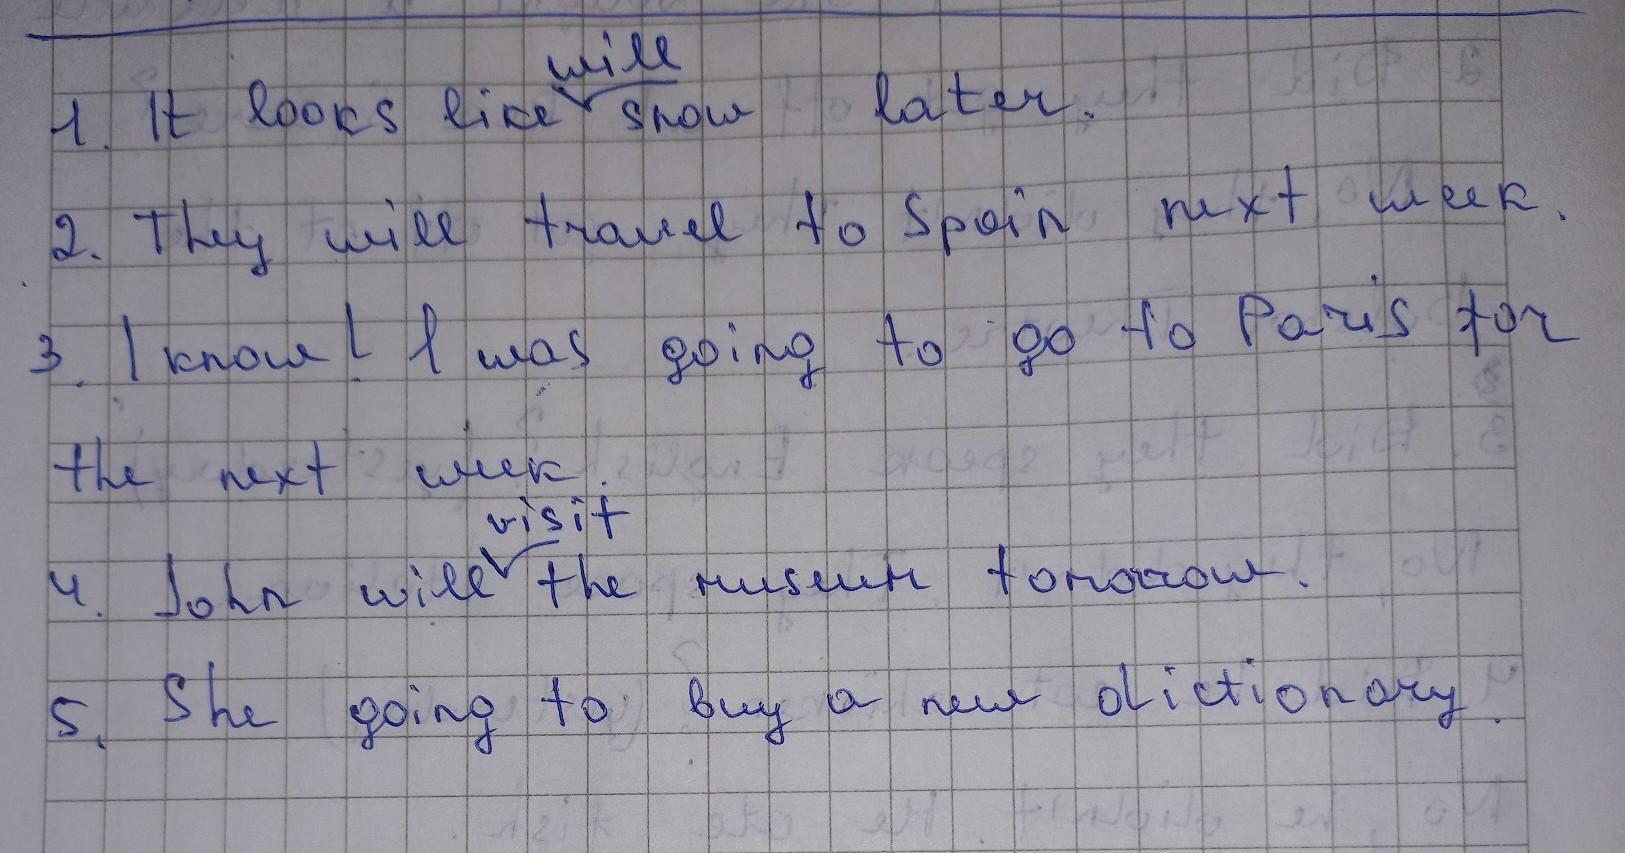 1. It looks like will snow later.
2. They will travel to Spain next week.
3. I know! I was going to go to Paris for
the next week.
4. John will visit the museum tomorrow.
5. She going to buy a new dictionary.